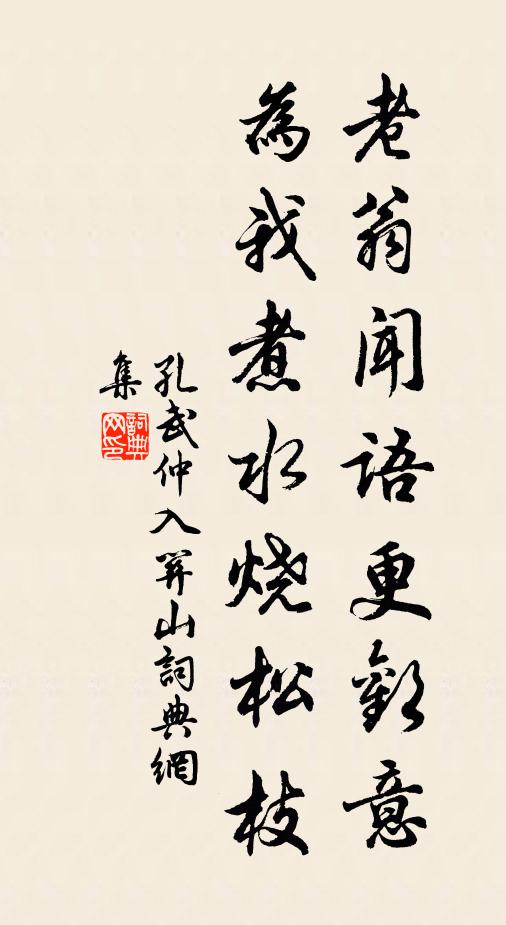 老翁闻语更勤意
為我煮水烧松枝
孔武仲入羿山詞典網
集
詞典网印